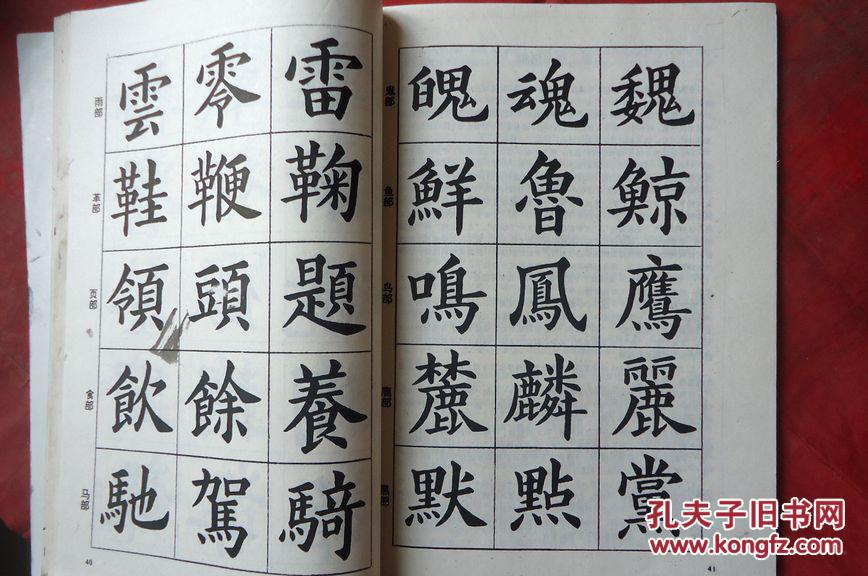 雨部 雲零雷
革部 鞋鞭鞠
页部 領頭題
食部 飲餘養
马部 馳駕騎
40
鬼部 魄魂魏
鱼部 鮮魯鯨
鸟部 鳴鳳鷹
鹿部 麓麟麗
黑部 默點黨
41
孔夫子旧书网
www.kongfz.com